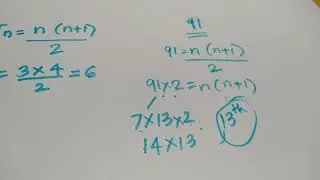 Tn = n (n+1) / 2
= 3 x 4 / 2 = 6
91
91 = n (n+1) / 2
91 x 2 = n (n+1)
7 x 13 x 2
14 x 13
13th